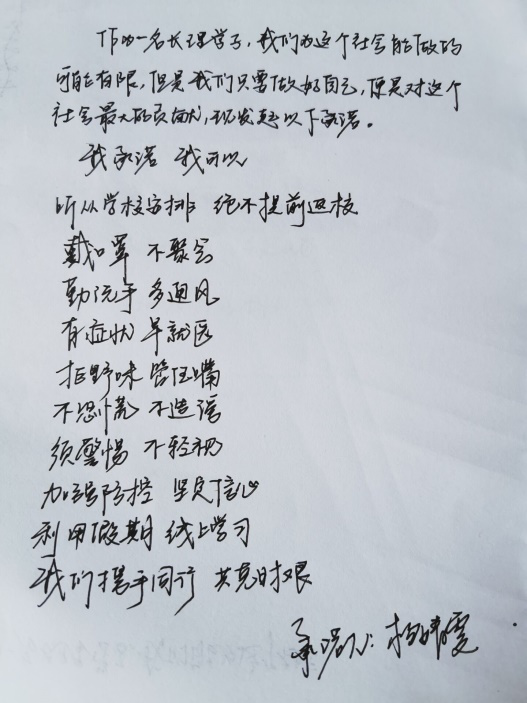 作为一名长理学子,我们为这个社会能做的
可能有限,但是我们只要做好自己,便是对这个
社会最大的贡献,现发起以下承诺。
我承诺 我可以
听从学校安排 绝不提前返校
戴口罩 不聚会
勤洗手 多通风
有症状 早就医
拒野味 管住嘴
不恐慌 不造谣
须警惕 不轻视
加强防控 坚定信心
利用假期 线上学习
我们携手同行 共克时艰
承诺人: